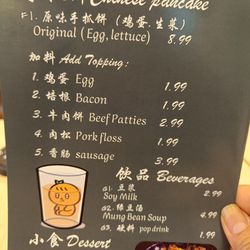 Chinese pancake
F1. 原味手抓饼 (鸡蛋.生菜)
Original (Egg, lettuce) 8.99
加料 Add Topping:
1. 鸡蛋 Egg 1.99
2. 培根 Bacon 1.99
3. 牛肉饼 Beef Patties 2.99
4. 肉松 Pork floss 1.99
5. 香肠 sausage 3.99
饮品 Beverages
a1. 豆浆
Soy Milk 2.99
a2. 绿豆汤
Mung Bean Soup 4.99
a3. 硬料 pop drink 1.99
小食 Dessert